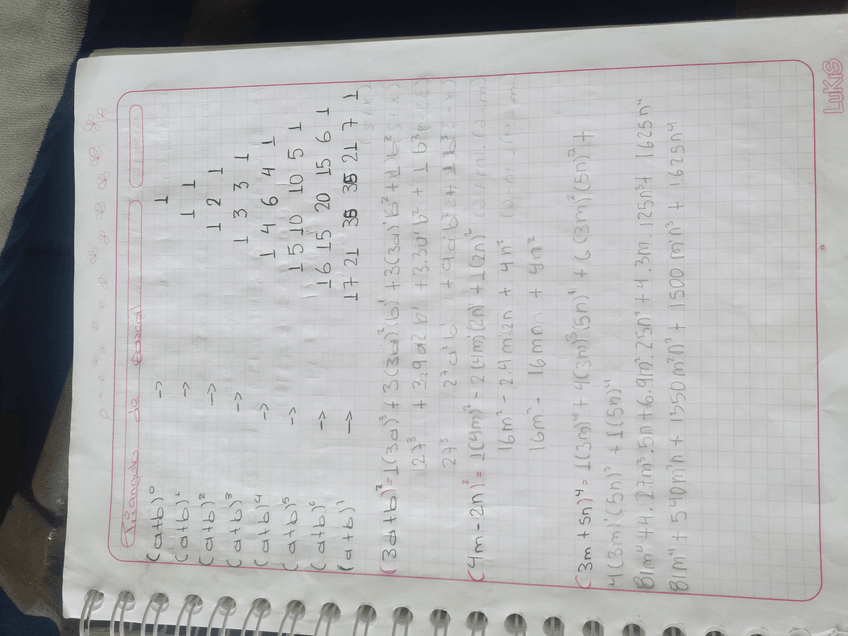 Triángulo de Pascal
(a+b)⁰ -> 1
(a+b)¹ -> 1 1
(a+b)² -> 1 2 1
(a+b)³ -> 1 3 3 1
(a+b)⁴ -> 1 4 6 4 1
(a+b)⁵ -> 1 5 10 10 5 1
(a+b)⁶ -> 1 6 15 20 15 6 1
(a+b)⁷ -> 1 7 21 35 35 21 7 1
(3a+b)³ = 1(3a)³ + 3(3a)²b¹ + 3(3a)¹b² + 1b³
127³ + 3.9a²b¹ + 3.3a¹b² + 1b³
27³ 27a²b¹ + 9a¹b² + 1b³
(4m-2n)² = 1(4m)² - 2(4m)(2n)¹ + 1(2n)²
16m² - 2.4m.2n + 4n²
16m² - 16mn + 4n²
(3m+5n)⁴ = 1(3m)⁴ + 4(3m)³(5n)¹ + 6(3m)²(5n)² +
4(3m)¹(5n)³ + 1(5n)⁴
81m⁴ + 4.27m³.5n + 6.9m².25n² + 4.3m.125n³ + 1625n⁴
81m⁴ + 540m³n + 1350m²n² + 1500m¹n³ + 1625n⁴
LUKIS